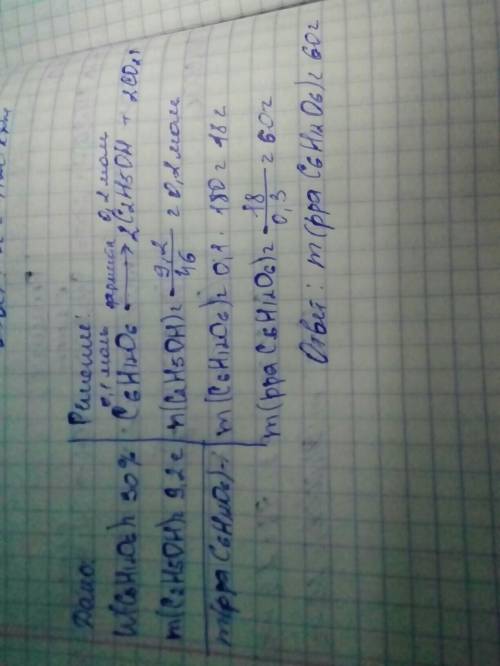 Дано:
W(C6H12O6)= 30%
m(C2H5OH)= 9,2 г
m(рра C6H12O6)-?
Решение:
0,1 моль фермент 0,2 моль
C6H12O6 ⟶ 2C2H5OH + 2CO2↑
n(C2H5OH)= 9,2/46 = 0,2 моль
m(C6H12O6)= 0,1 · 180 = 18 г
m(рра C6H12O6)= 18/0,3 = 60г
Ответ: m(рра C6H12O6)= 60г